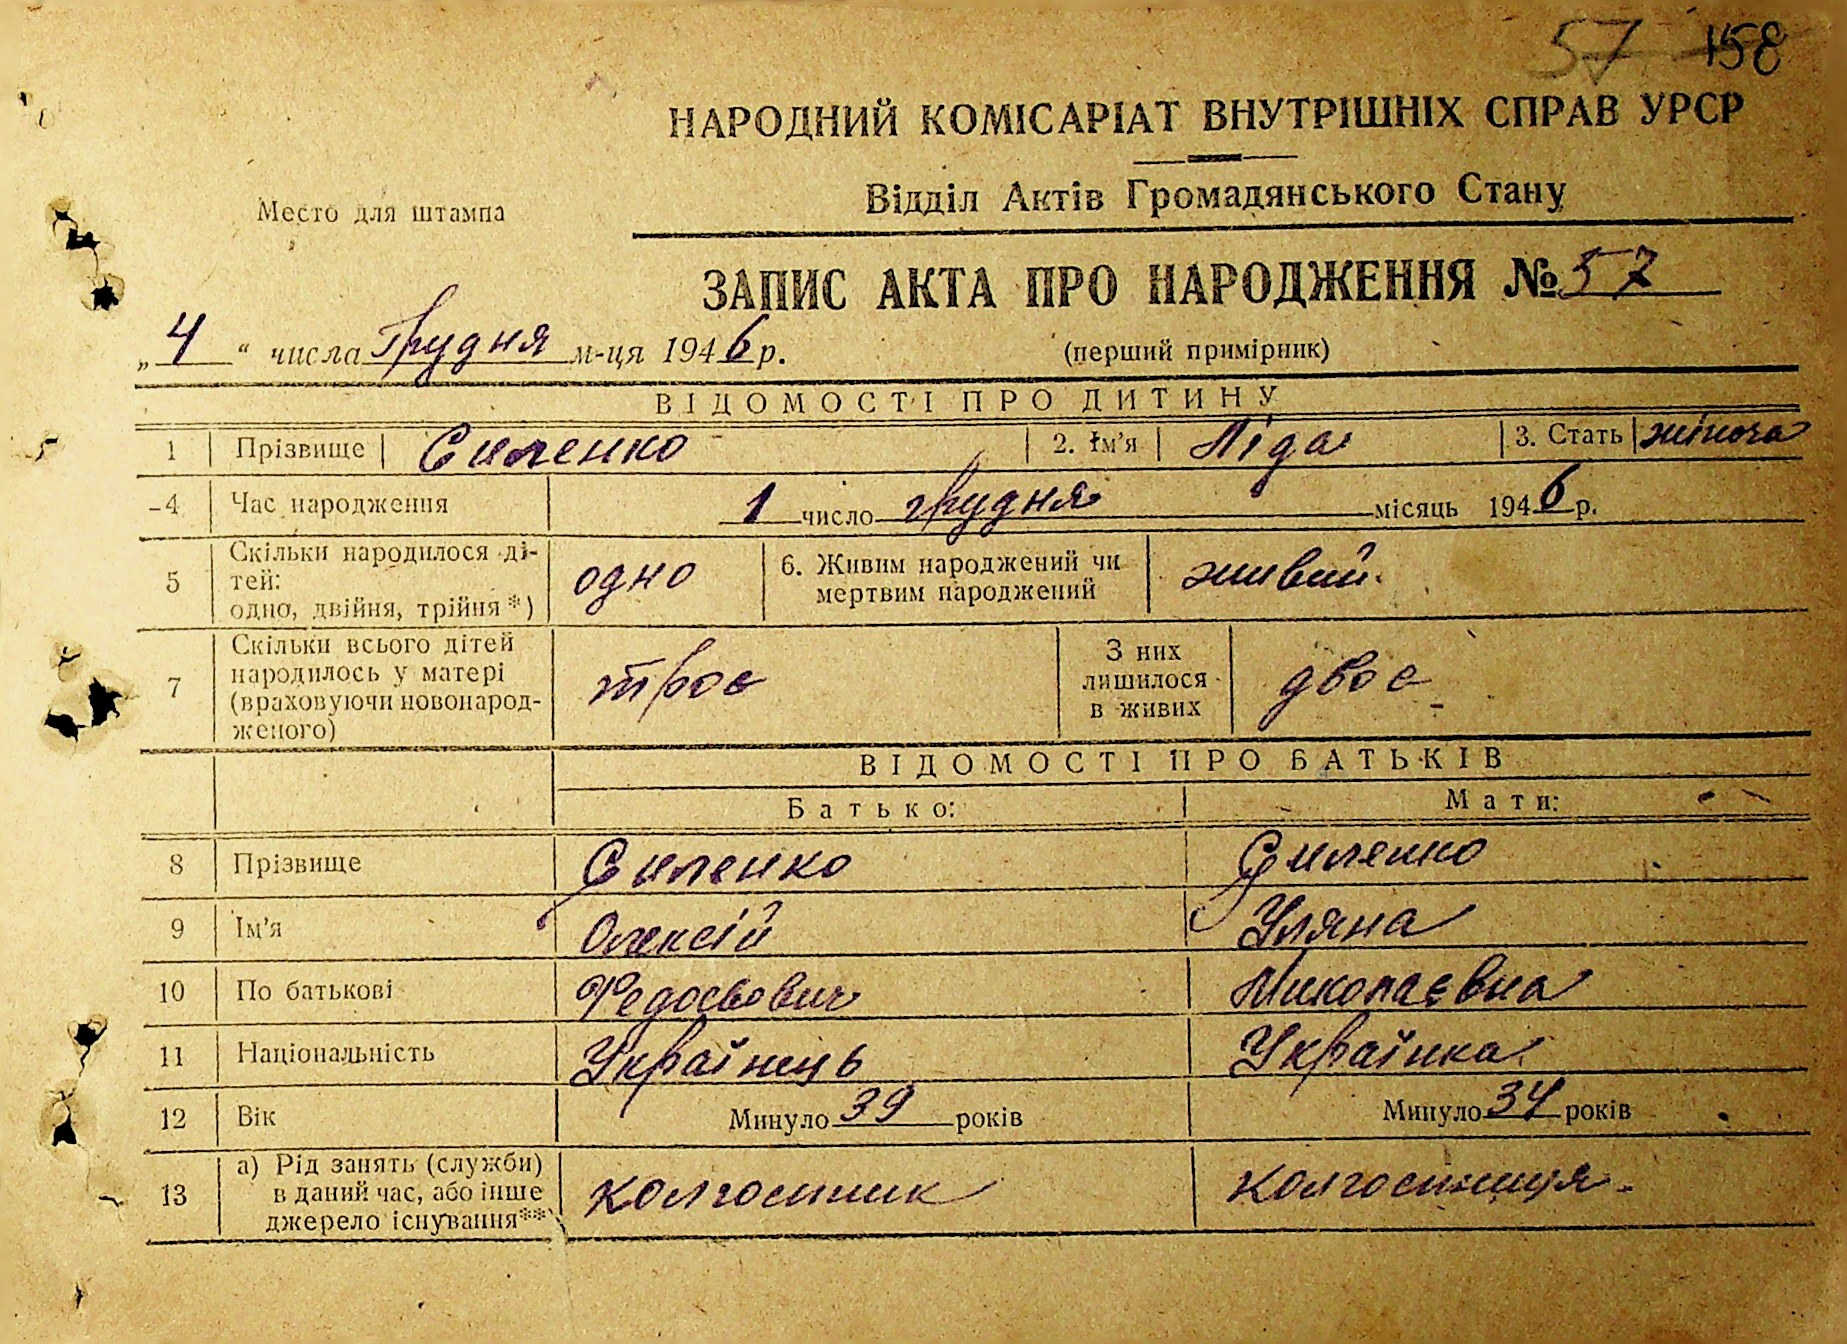 57 158
НАРОДНИЙ КОМІСАРІАТ ВНУТРІШНІХ СПРАВ УРСР
Место для штампа
Відділ Актів Громадянського Стану
ЗАПИС АКТА ПРО НАРОДЖЕННЯ № 57
„4“ числа Грудня м-ця 1946 р.
(перший примірник)
ВІДОМОСТІ ПРО ДИТИНУ
1 Прізвище Силенко 2. Ім'я Ліда 3. Стать жіноча
4 Час народження 1 число грудня місяць 1946 р.
5 Скільки народилося ді-
тей:
одно, двійня, трійня*) одно
6. Живим народжений чи
мертвим народжений живий.
7 Скільки всього дітей
народилось у матері
(враховуючи новонарод-
женого) троє
З них
лишилося
в живих двоє
ВІДОМОСТІ ПРО БАТЬКІВ
Батько: Мати:
8 Прізвище Силенко Силенко
9 Ім'я Олексій Уляна
10 По батькові Федосьович Миколаєвна
11 Національність Українець Українка
12 Вік Минуло 39 років Минуло 34 років
13 а) Рід занять (служби)
в даний час, або інше
джерело існування**) колгоспник колгоспниця.